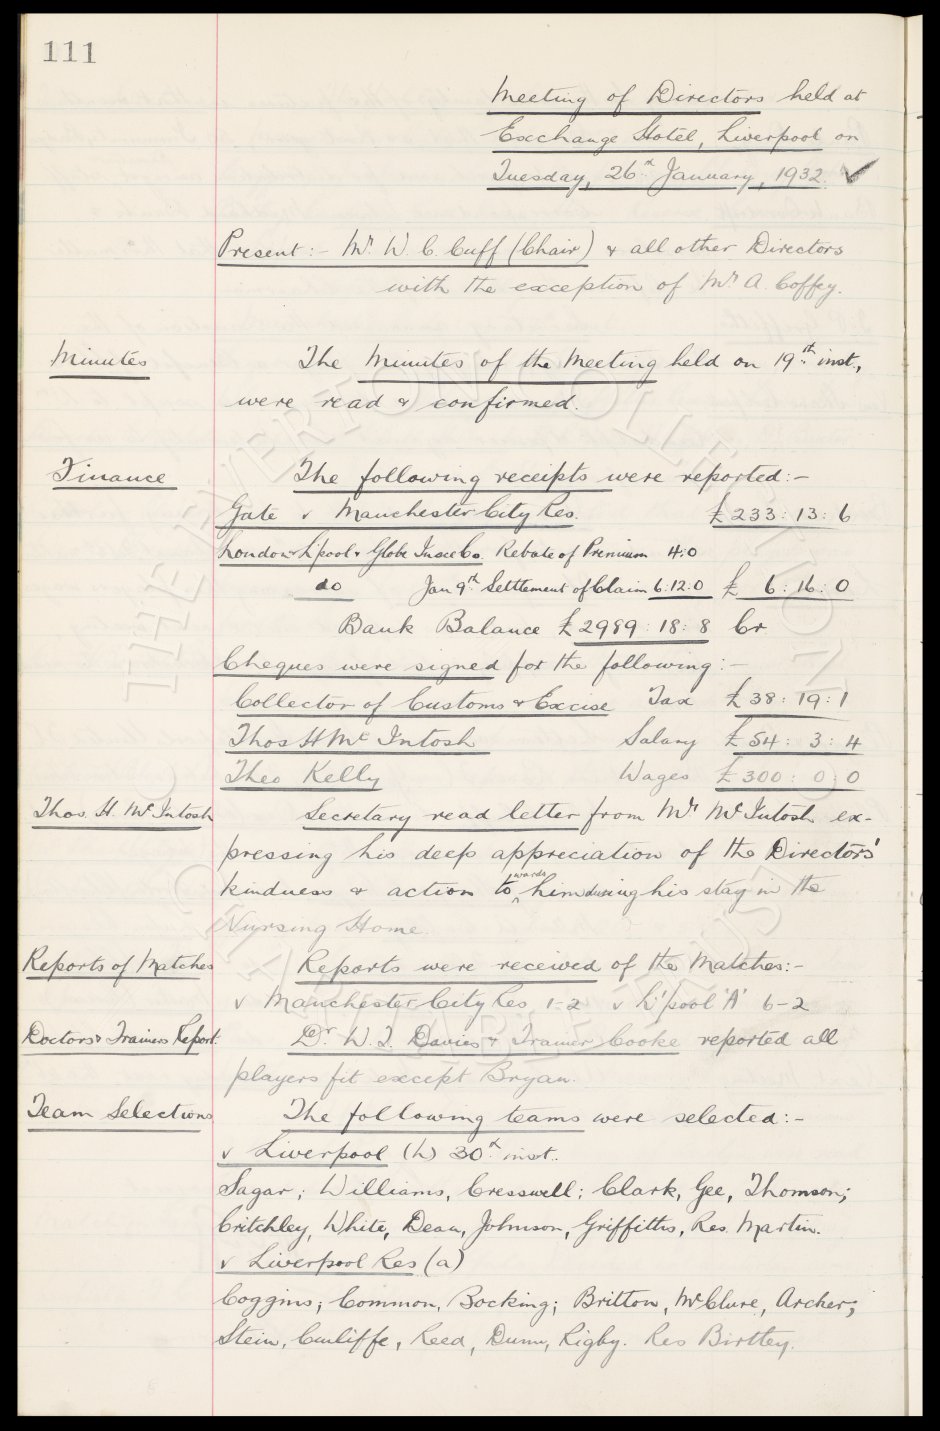 111
Meeting of Directors held at
Exchange Hotel, Liverpool on
Tuesday, 26th January, 1932. ✓
Present:- Mr. W. C. Cuff (Chair) & all other Directors
with the exception of Mr. A. Coffey.
Minutes
The Minutes of the Meeting held on 19th inst.,
were read & confirmed.
Finance
The following receipts were reported:-
Gate v Manchester City Res. £233:13:6
London L'pool & Globe Insce Co. Rebate of Premium 4:0
do Jan 9th Settlement of Claim 6:12:0 £ 6:16:0
Bank Balance £2989:18:8 Cr
Cheques were signed for the following:-
Collector of Customs & Excise Tax £38:19:1
Thos H Mc Intosh Salary £54:3:4
Theo Kelly Wages £300:0:0
Thos. H. Mc Intosh
Secretary read letter from Mr. Mc Intosh ex-
pressing his deep appreciation of the Directors'
kindness & action towards him during his stay in the
Nursing Home.
Reports of Matches
Reports were received of the Matches:-
v Manchester City Res 1-2 v L'pool 'A' 6-2
Doctors & Trainers Report.
Dr. W. J. Davies & Trainer Cooke reported all
players fit except Bryan.
Team Selections
The following teams were selected:-
v Liverpool (h) 30th inst.
Sagar; Williams, Cresswell; Clark, Gee, Thomson;
Critchley, White, Dean, Johnson, Griffiths, Res. Martin.
v Liverpool Res (a)
Coggins; Common, Bocking; Britton, McClure, Archer;
Stein, Cunliffe, Reed, Dunn, Rigby. Res Birtley.
THE EVERTON COLLECTION
CHARITABLE TRUST